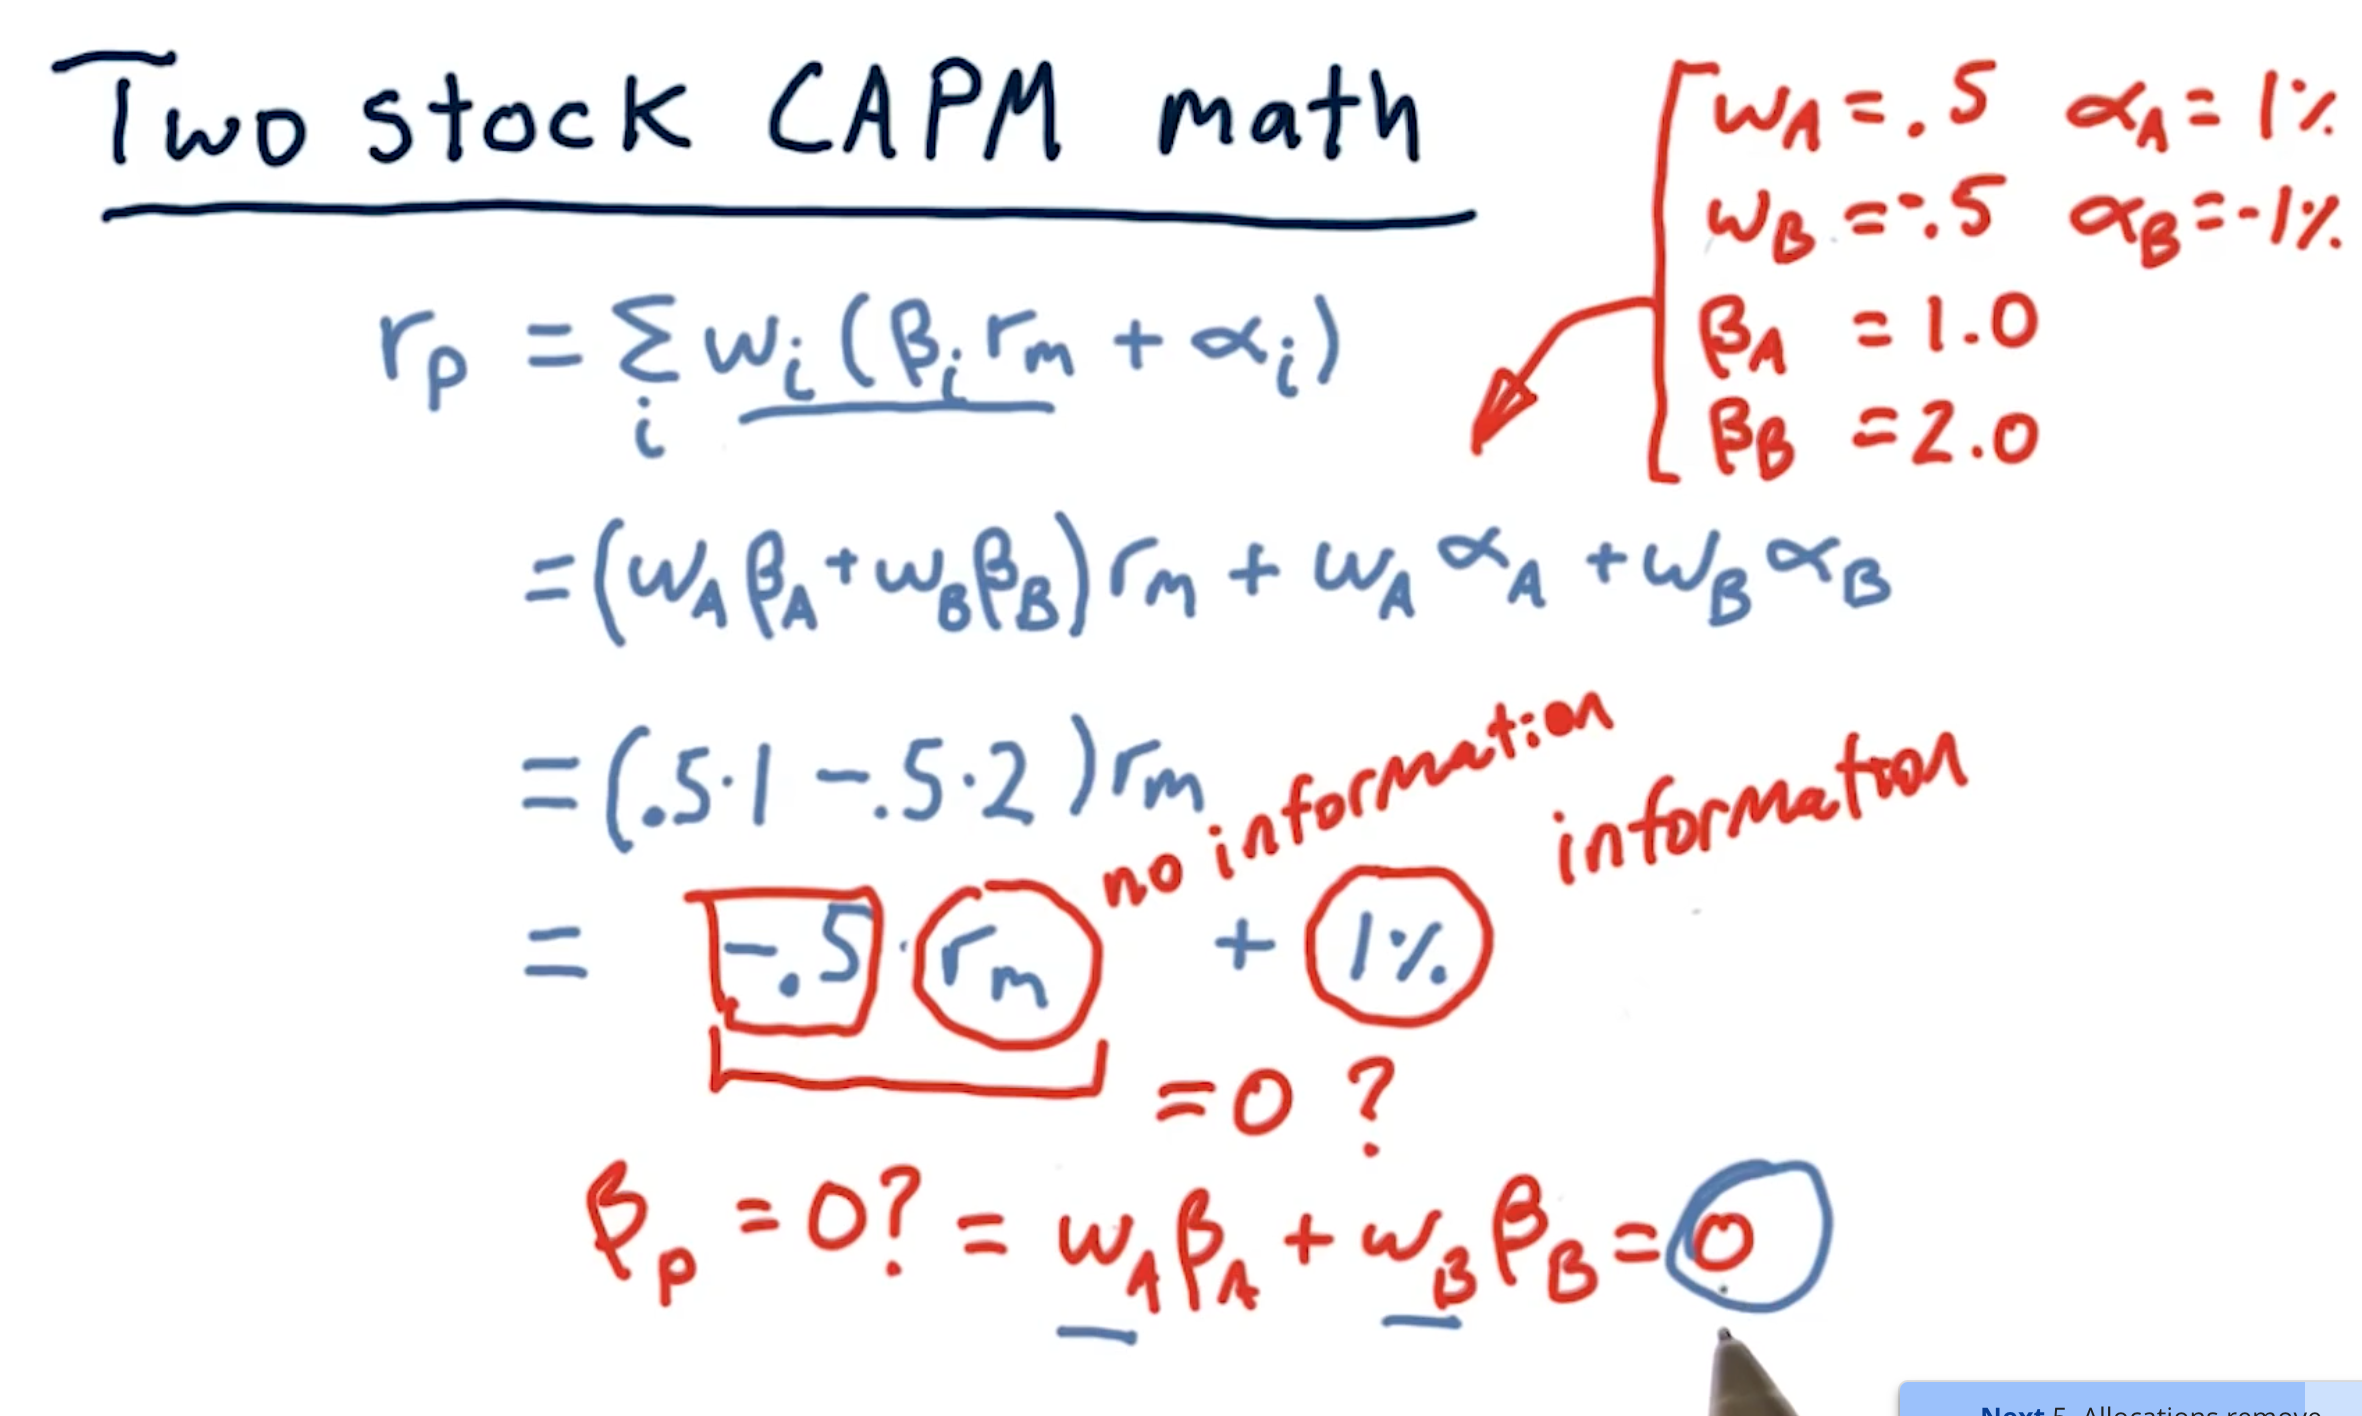 Two stock CAPM math
wA = .5 αA = 1%
wB = -.5 αB = -1%
βA = 1.0
βB = 2.0
rp = Σi wi (βi rm + αi)
= (wA βA + wB βB) rm + wA αA + wB αB
= (.5·1 - .5·2) rm
no information
information
= -.5 · rm + 1%
= 0 ?
βp = 0? = wA βA + wB βB = 0
Next 5. Allocations remove